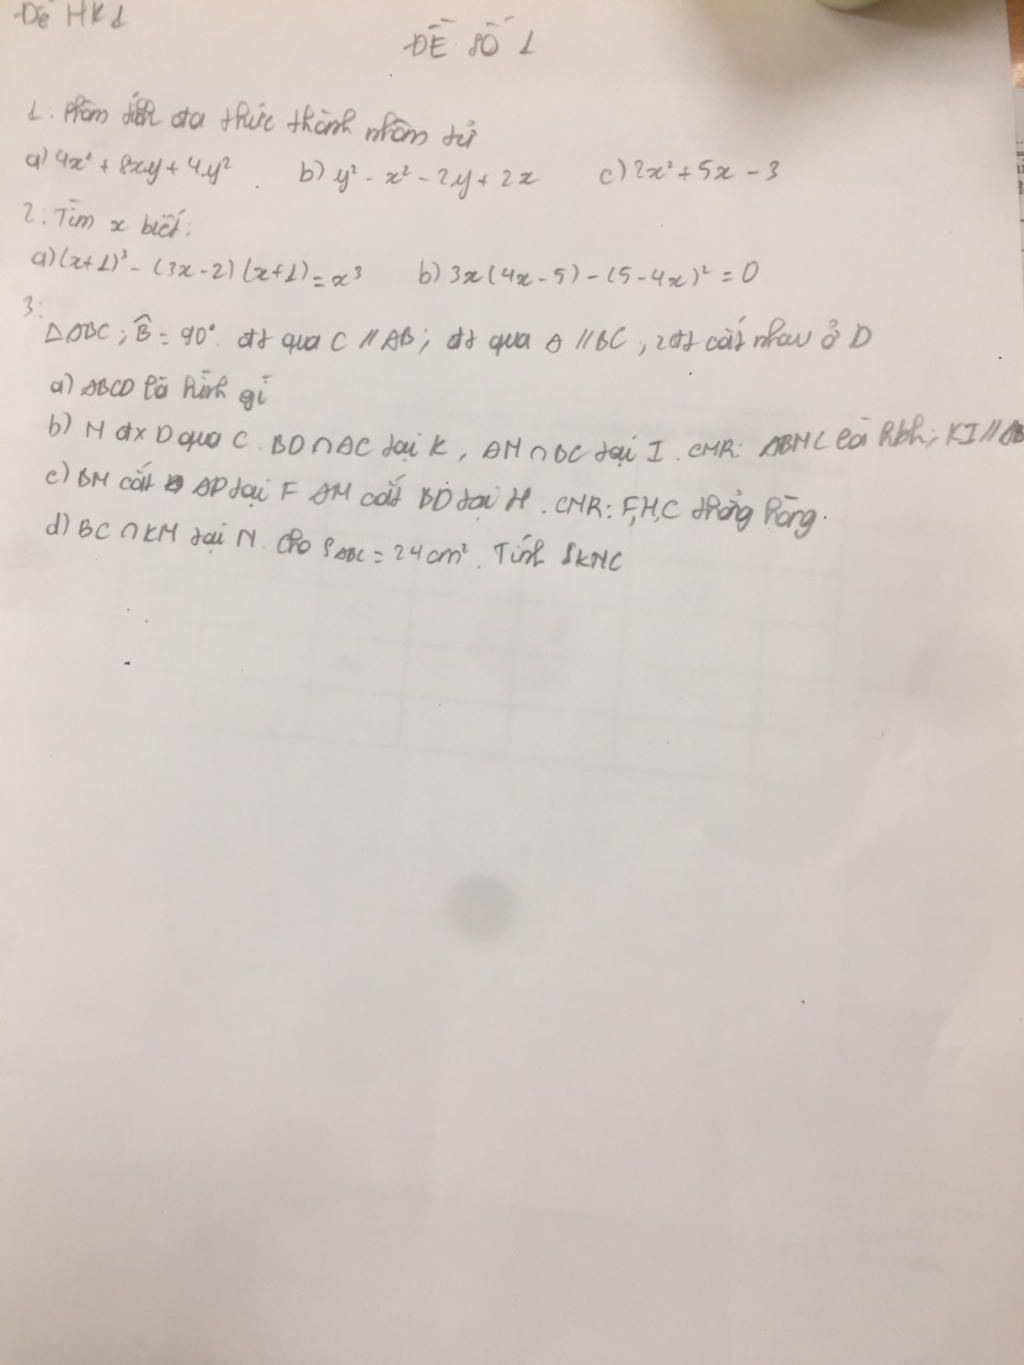 Đề HK1
ĐỀ SỐ 1
1. Phân tích đa thức thành nhân tử
a) 4x² + 8xy + 4y² b) y² - x² - 2y + 2x c) 2x² + 5x - 3
2. Tìm x biết:
a) (x+1)³ - (3x-2)(x+1) = x³ b) 3x(4x-5) - (5-4x)² = 0
3:
△ABC; B̂ = 90° đt qua C // AB; đt qua A // BC, 2đt cắt nhau ở D
a) ABCD là hình gì
b) M đx D qua C. BD ∩ AC tại K, AM ∩ BC tại I. CMR: ABMC là hbh; KI // AB
c) BM cắt AD tại F AM cắt BD tại H. CMR: F,H,C thẳng hàng.
d) BC ∩ KM tại N. Cho SABC = 24cm². Tính SKNC